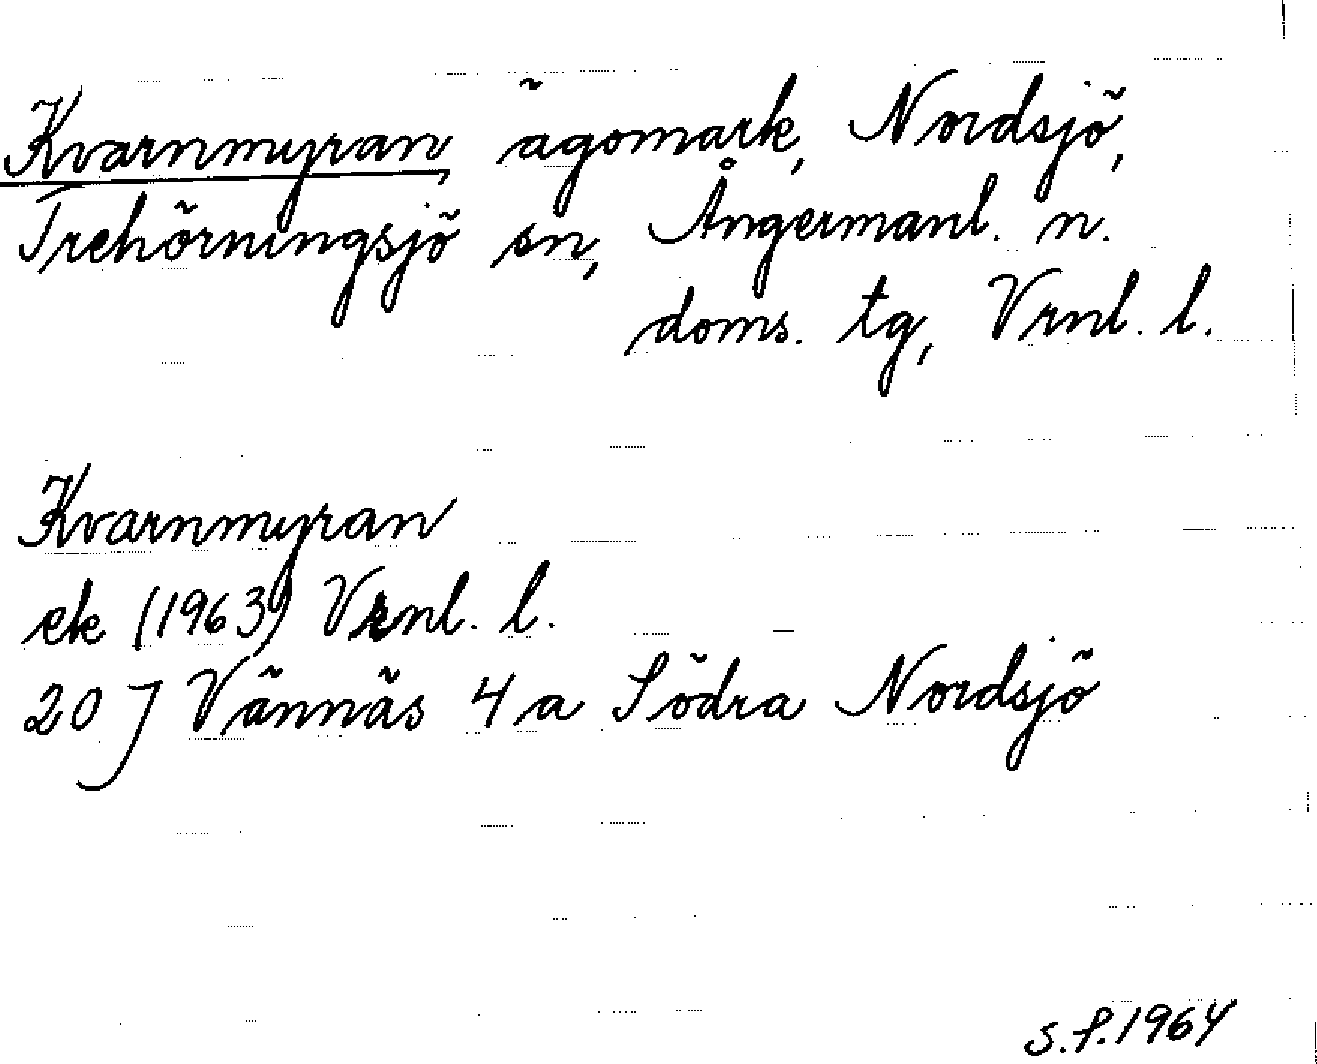 Kvarnmyran, ägomark, Nordsjö,
Trehörningsjö sn, Ångermanl. n.
doms. tg, Vrnl. l.
Kvarnmyran
ek (1963) Vrnl. l.
20 J Vännäs 4 a Södra Nordsjö
S.P. 1964